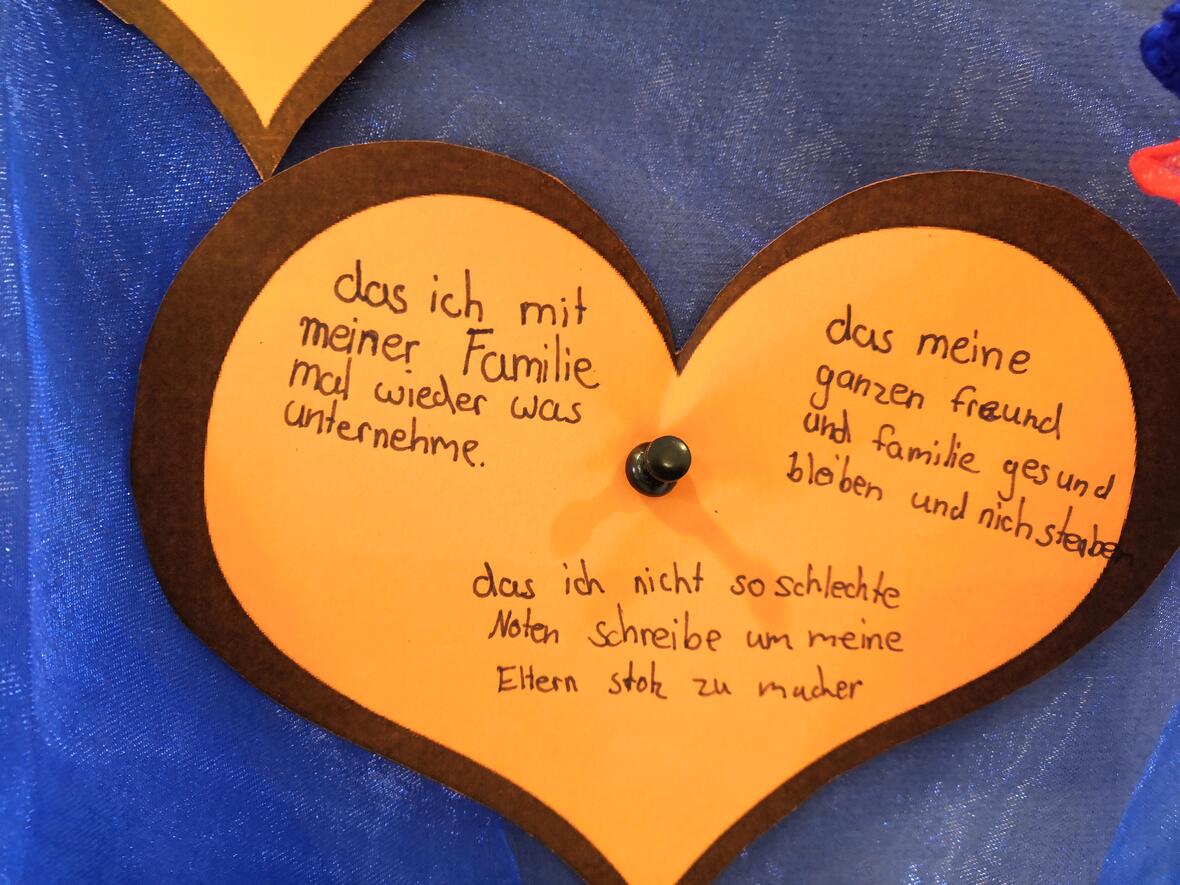 das ich mit
meiner Familie
mal wieder was
unternehme.
das meine
ganzen freund
und familie gesund
bleiben und nich sterben
das ich nicht so schlechte
Noten schreibe um meine
Eltern stolz zu machen